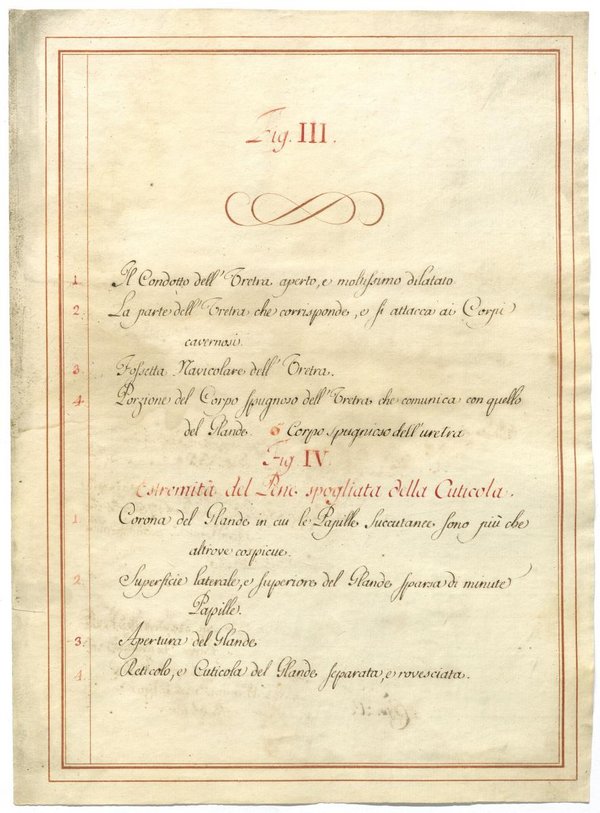 Fig. III.
1. Il Condotto dell'Uretra aperto, e moltissimo dilatato
2. La parte dell'Uretra che corrisponde, e si attacca ai Corpi
cavernosi.
3. Fossetta Navicolare dell'Uretra.
4. Porzione del Corpo spugnoso dell'Uretra che comunica con quello
del Glande. 6 Corpo spugnioso dell'uretra
Fig IV.
Estremità del Pene spogliata della Cuticola.
1. Corona del Glande in cui le Papille Succutanee sono più che
altrove cospicue.
2. Superficie laterale, e superiore del Glande sparsa di minute
Papille.
3. Apertura del Glande
4. Reticolo, e Cuticola del Glande separata, e rovesciata.